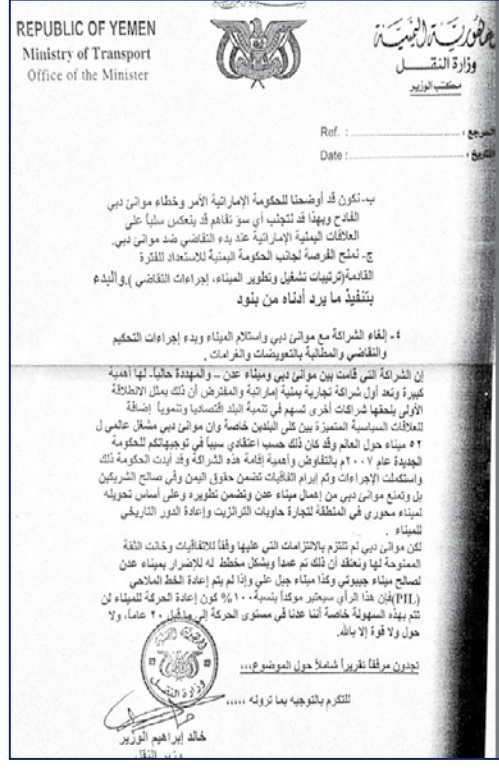 REPUBLIC OF YEMEN
Ministry of Transport
Office of the Minister
وزارة النقل
مكتب الوزير
Ref. : المرجع :
Date : التاريخ :
ب- نكون قد أوضحنا للحكومة الإماراتية الأمر وخطاء موانئ دبي
الفادح وبهذا قد نتجنب أي سؤ تفاهم قد ينعكس سلباً على
العلاقات اليمنية الإماراتية عند بدء التقاضي ضد موانئ دبي.
ج- نمنح الفرصة لجانب الحكومة اليمنية للاستعداد للفترة
القادمة (ترتيبات تشغيل وتطوير الميناء، إجراءات التقاضي ). والبدء
بتنفيذ ما يرد أدناه من بنود
٤- إلغاء الشراكة مع موانئ دبي واستلام الميناء وبدء إجراءات التحكيم
والتقاضي والمطالبة بالتعويضات والغرامات .
إن الشراكة التي قامت بين موانئ دبي وميناء عدن – والمهددة حالياً- لها أهمية
كبيرة وتعد أول شراكة تجارية يمنية إماراتية والمفترض أن ذلك يمثل الإنطلاقة
الأولى يلحقها شراكات أخرى تسهم في تنمية البلد اقتصاديا وتنموياً إضافة
للعلاقات السياسية المتميزة بين كلى البلدين خاصة وان موانئ دبي مشغل عالمي ل
٥٢ ميناء حول العالم وقد كان ذلك حسب اعتقادي سبباً في توجيهاتكم للحكومة
الجديدة عام ٢٠٠٧م بالتفاوض وأهمية إقامة هذه الشراكة وقد أيدت الحكومة ذلك
واستكملت الإجراءات وتم إبرام اتفاقيات تضمن حقوق اليمن وفي صالح الشريكين
بل وتمنع موانئ دبي من إهمال ميناء عدن وتضمن تطويره وعلى أساس تحويله
لميناء محوري في المنطقة لتجارة حاويات الترانزيت وإعادة الدور التاريخي
للميناء .
لكن موانئ دبي لم تلتزم بالالتزامات التي عليها وفقاً للاتفاقيات وخانت الثقة
الممنوحة لها ونعتقد أن ذلك تم عمداً وبشكل مخطط له للإضرار بميناء عدن
لصالح ميناء جيبوتي وكذا ميناء جبل علي وإذا لم يتم إعادة الخط الملاحي
(PIL) فإن هذا الرأي سيعتبر مؤكداً بنسبة ١٠٠% كون إعادة الحركة للميناء لن
تتم بهذه السهولة خاصة أننا عدنا في مستوى الحركة إلى ما قبل ٢٠ عاماً، ولا
حول ولا قوة إلا بالله.
تجدون مرفقاً تقريراً شاملاً حول الموضوع،،،
للتكرم بالتوجيه بما ترونه ،،،،،
وزارة النقل
خالد إبراهيم الوزير
وزير النقل